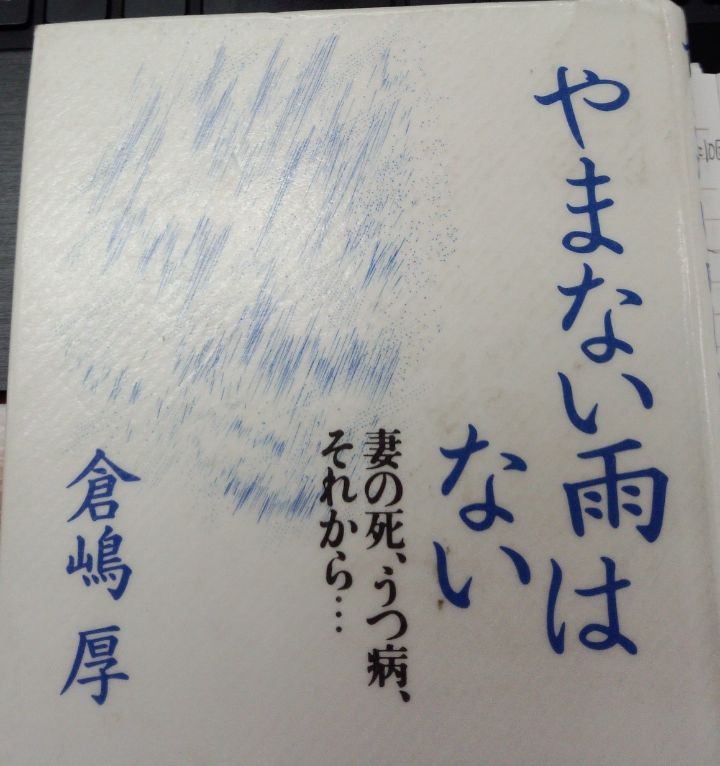 やまない雨は
ない
妻の死、うつ病、
それから…
倉嶋 厚